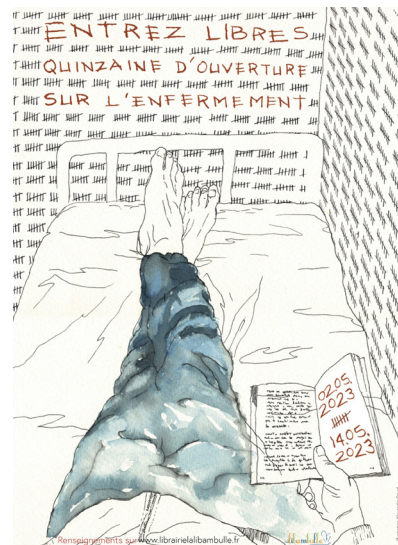 ENTREZ LIBRES
QUINZAINE D'OUVERTURE
SUR L'ENFERMEMENT
02.05.
2023
14.05.
2023
Renseignements sur www.librairielalibambulle.fr
libambulle